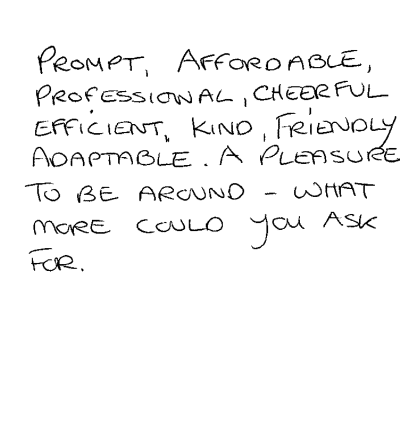 PROMPT, AFFORDABLE,
PROFESSIONAL, CHEERFUL
EFFICIENT, KIND, FRIENDLY
ADAPTABLE. A PLEASURE
TO BE AROUND - WHAT
MORE COULD YOU ASK
FOR.